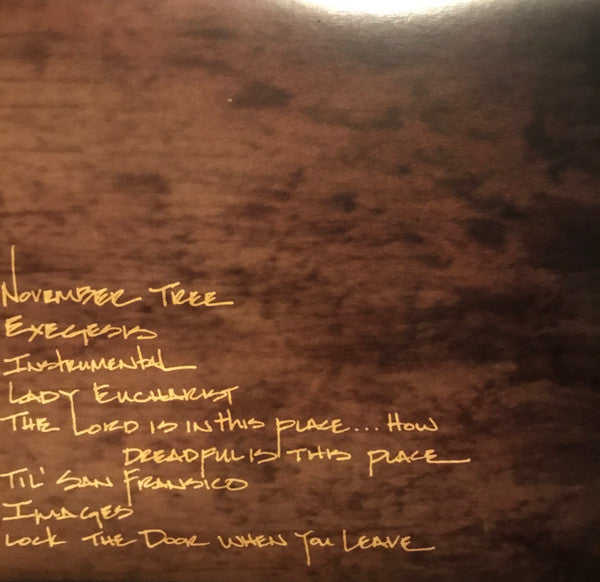 November Tree
Exegesis
Instrumental
Lady Eucharist
The Lord is in this place...How
dreadful is this place
Til' San Fransico
Images
Lock the Door when you Leave